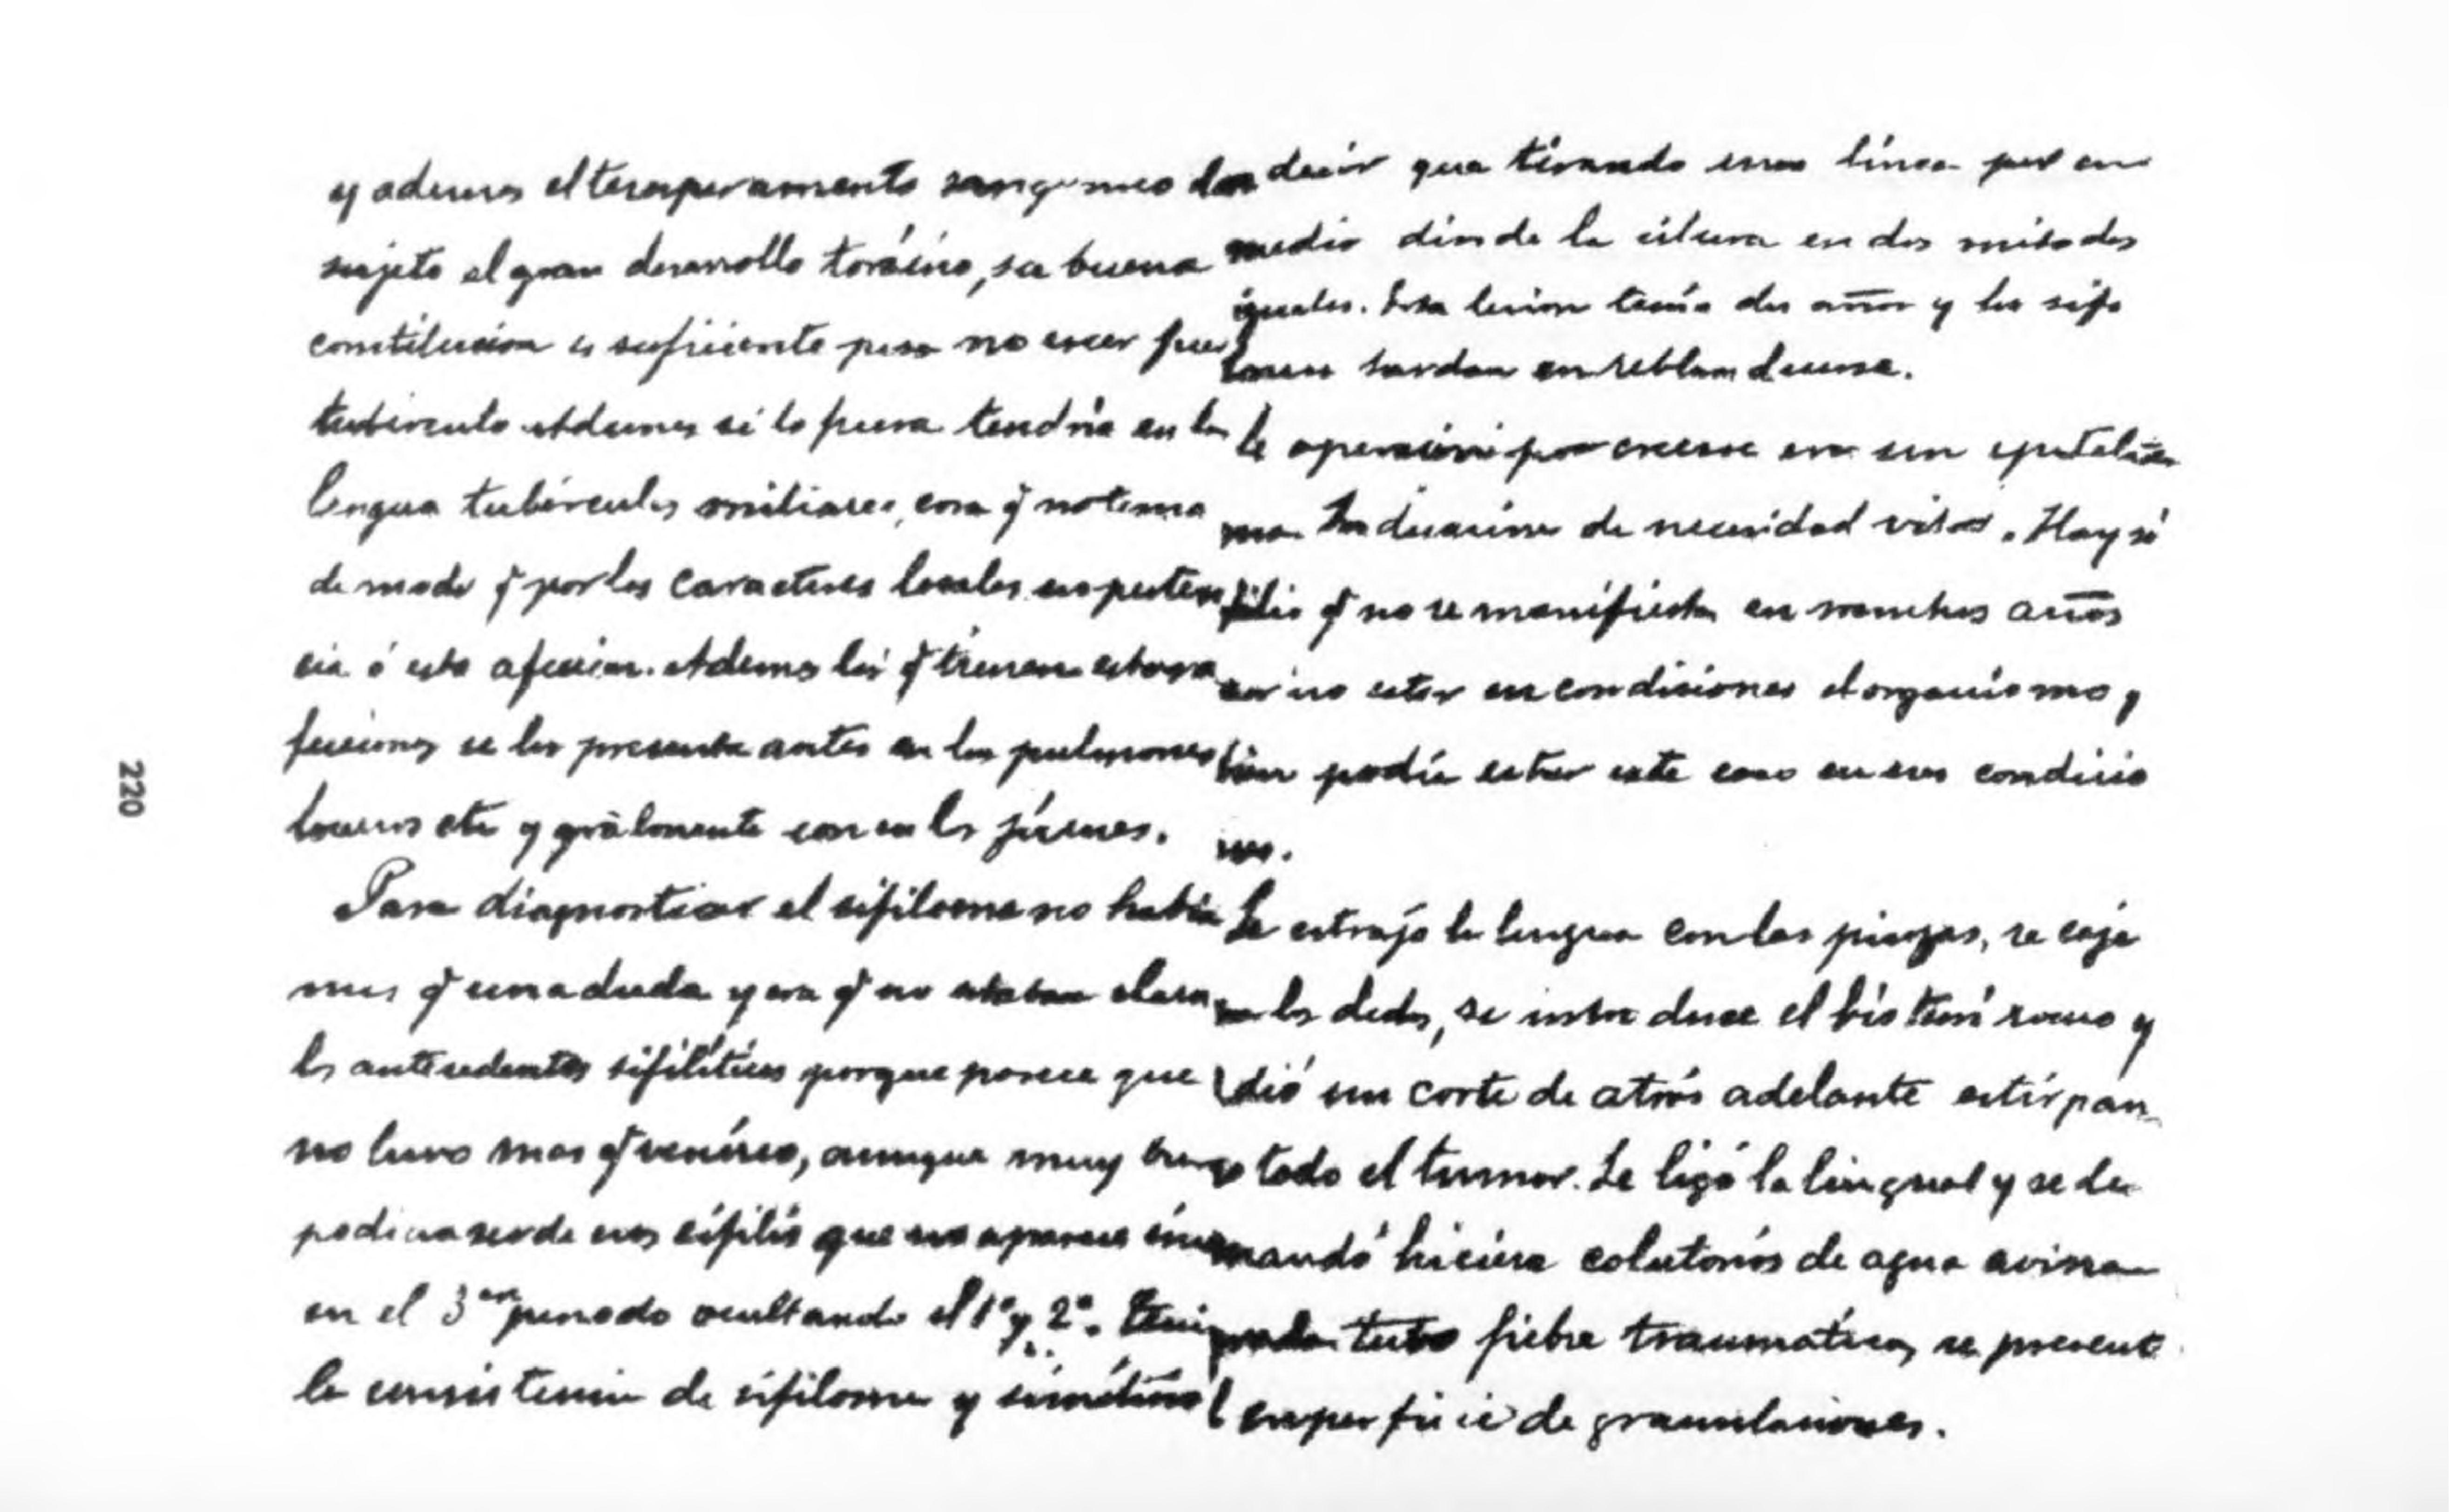 y ademas el temperamento sanguineo del
sujeto el gran desarrollo torácico, su buena
constitucion es suficiente para no creer fuera
tubérculo. Ademas si lo fuera tendria en la
lengua tubérculos miliares, cosa q̃ no tenia
de modo q̃ por los caracteres locales no pertene
cia á esta afeccion. Ademas los q̃ tienen estas a
fecciones se les presenta antes en los pulmones
etc y gràlmente son en ls jóvenes.
Para diagnosticar el sifiloma no habia
mas q̃ una duda y era q̃ no estaban claros
ls antecedentes sifilíticos porque parece que
no tuvo mas q̃ venéreo, aunque muy bien
podia ser de esas sífilis que no aparece sino
en el 3er periodo ocultando el 1º y 2º. Tenia
la consistencia de sifiloma y simétrico
decir que tirando una línea por en
medio divide la úlcera en dos mitades
iguales. Esta lesion tenia dos años y los sifi
lomas tardan en reblandecerse.
Se operó por creerse era un epitelio
ma. de necesidad vital. Hay sí
filis q̃ no se manifiesta en muchos años
por no estar en condiciones el organismo y
bien podía estar este caso en esas condicio
nes.
Se estrajo la lengua con las pinzas, se coje
con los dedos, se introduce el bisturí romo y
dió un corte de atrás adelante estirpan
do todo el tumor. Se ligó la lingual y se le
mandó hiciera colutorios de agua avina
grada. tuvo fiebre traumatica, se presentó
la superficie de granulaciones.
220